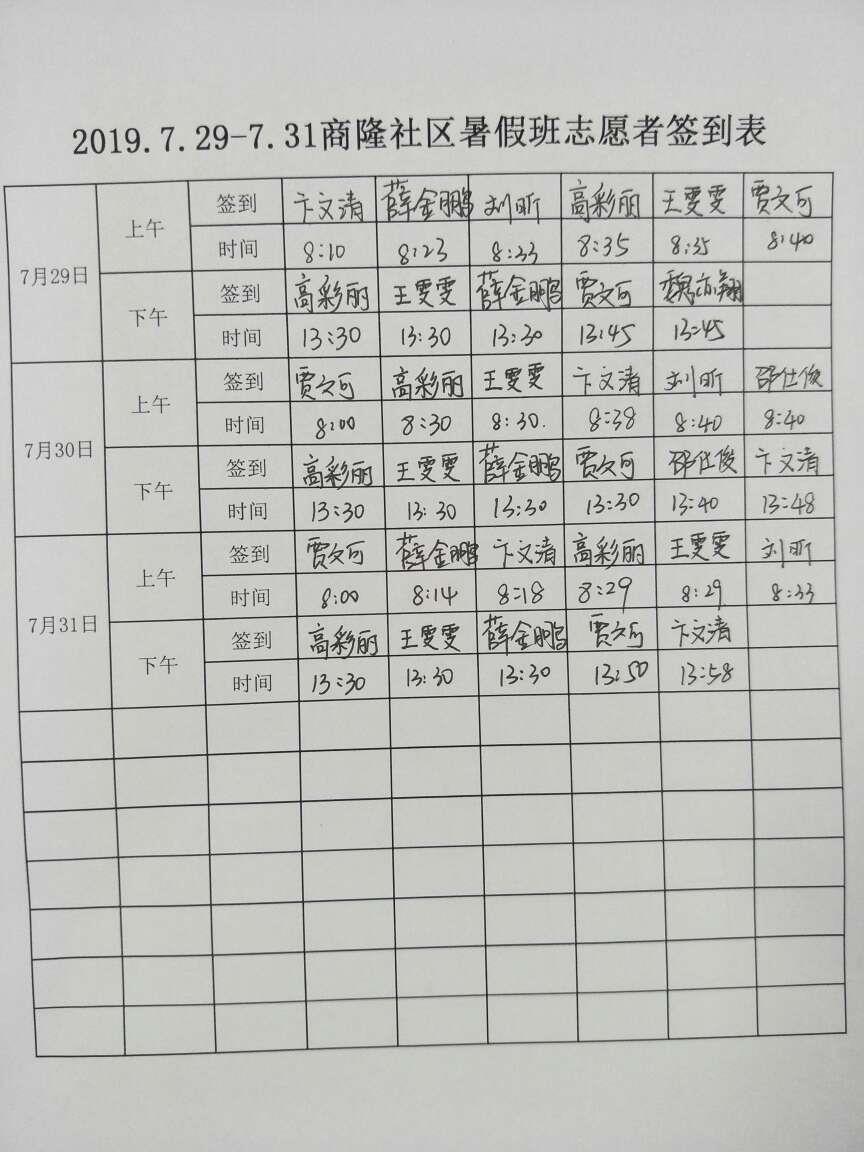 2019.7.29-7.31商隆社区暑假班志愿者签到表
7月29日 上午 签到 卞文清 薛金鹏 刘昕 高彩丽 王雯雯 贾文可
时间 8:10 8:23 8:33 8:35 8:35 8:40
下午 签到 高彩丽 王雯雯 薛金鹏 贾文可 魏亦翔
时间 13:30 13:30 13:30 13:45 13:45
7月30日 上午 签到 贾文可 高彩丽 王雯雯 卞文清 刘昕 邵仕俊
时间 8:00 8:30 8:30. 8:38 8:40 8:40
下午 签到 高彩丽 王雯雯 薛金鹏 贾文可 邵仕俊 卞文清
时间 13:30 13:30 13:30 13:30 13:40 13:48
7月31日 上午 签到 贾文可 薛金鹏 卞文清 高彩丽 王雯雯 刘昕
时间 8:00 8:14 8:18 8:29 8:29 8:33
下午 签到 高彩丽 王雯雯 薛金鹏 贾文可 卞文清
时间 13:30 13:30 13:30 13:50 13:58